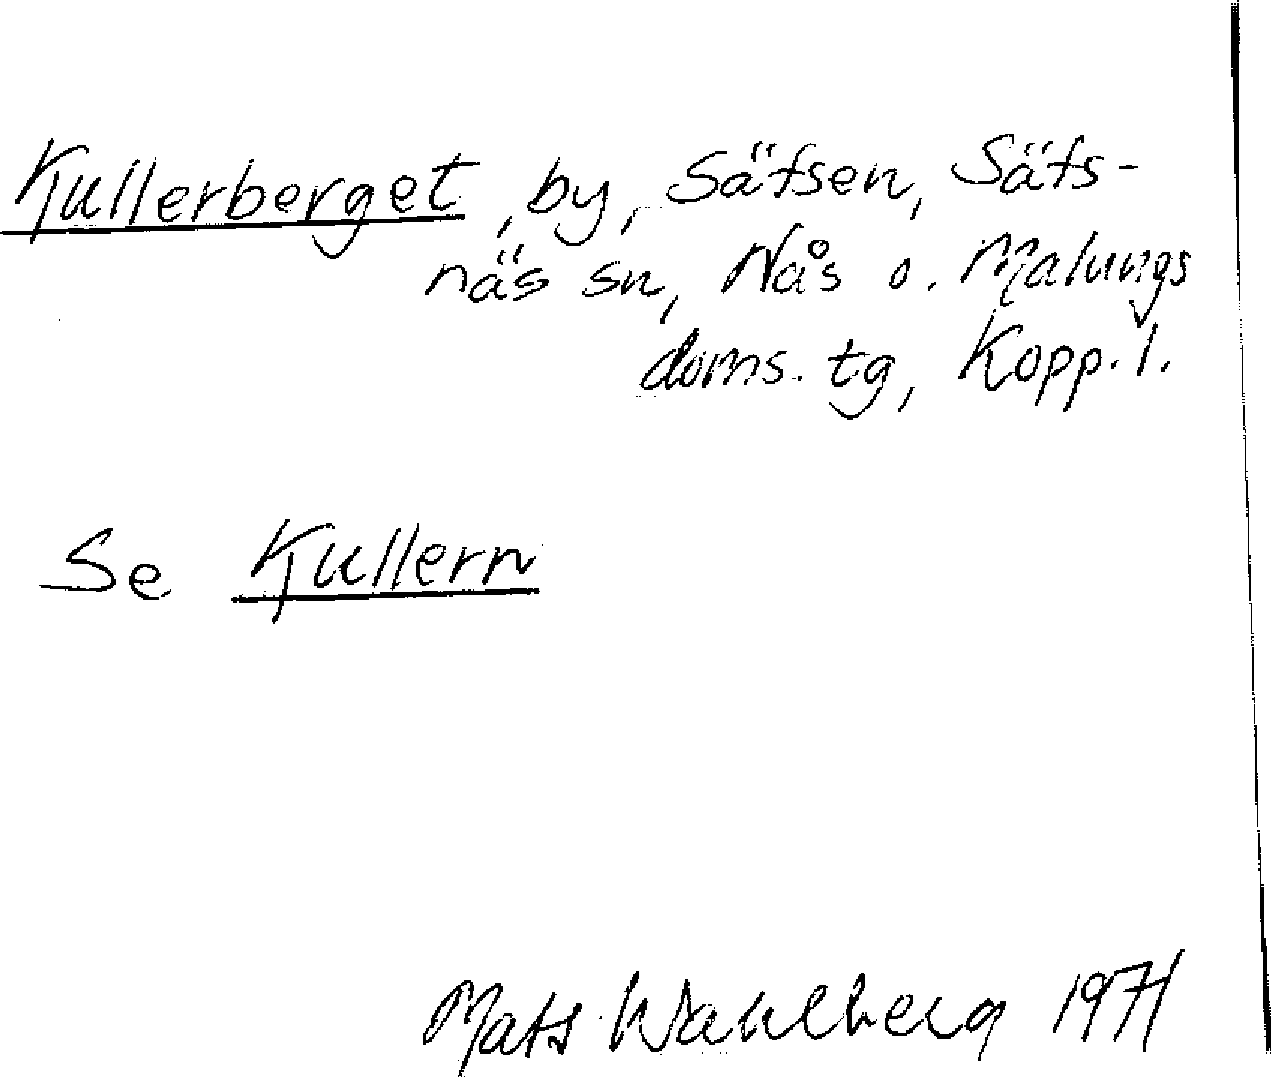 Kullerberget, by, Säfsen, Säfs-
näs sn, Nås o. Malungs
doms. tg, Kopp. l.
Se Kullern
Mats Wahlberg 1971